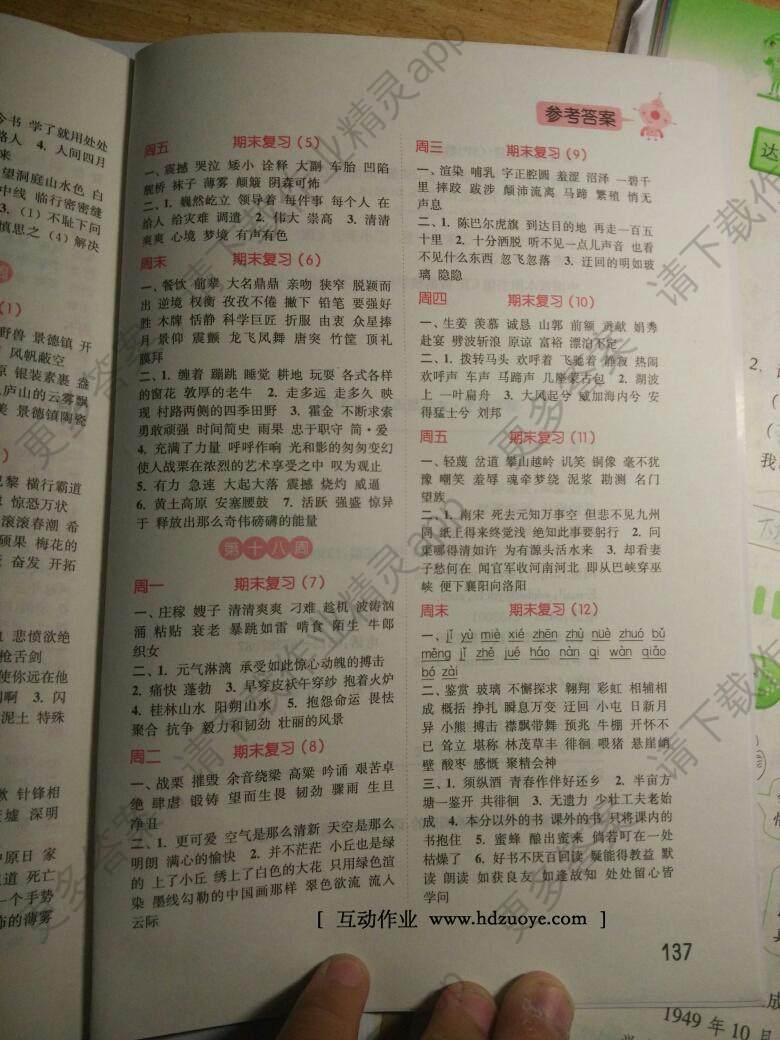 参考答案
今书 学了就用处处
路人 4. 人间四月
来
望洞庭山水色 白
中线 临行密密缝
3.（1）不耻下问
慎思之（4）解决
野兽 景德镇 开
风帆蔽空
原 银装素裹 盎
庐山的云雾飘
美 景德镇陶瓷
巴黎 横行霸道
惊恐万状
滚滚春潮 希
硕果 梅花的
奋发 开拓
悲愤欲绝
枪舌剑
使你远在他
啊 3. 闪
泥土 特殊
针锋相
墟 深明
中原日 家
道 死亡
一个手势
布的薄雾
周五 期末复习（5）
一、震撼 哭泣 矮小 诠释 大副 车胎 凹陷
舰桥 袜子 薄雾 颠簸 阴森可怖
二、1. 巍然屹立 领导着 每件事 每个人 在
给人 给灾难 调遣 2. 伟大 崇高 3. 清清
爽爽 心境 梦境 有声有色
周末 期末复习（6）
一、餐饮 前辈 大名鼎鼎 亲吻 狭窄 脱颖而
出 逆境 权衡 孜孜不倦 撇下 铅笔 要强好
胜 木牌 恬静 科学巨匠 折服 由衷 众星捧
月 景仰 震颤 龙飞凤舞 唐突 竹筐 顶礼
膜拜
二、1. 缠着 蹦跳 睡觉 耕地 玩耍 各式各样
的窗花 敦厚的老牛 2. 走多远 走多久 映
现 村路两侧的四季田野 3. 霍金 不断求索
勇敢顽强 时间简史 雨果 忠于职守 简·爱
4. 充满了力量 呼呼作响 光和影的匆匆变幻
使人战栗在浓烈的艺术享受之中 叹为观止
5. 有力 急速 大起大落 震撼 烧灼 威逼
6. 黄土高原 安塞腰鼓 7. 活跃 强盛 惊异
于 释放出那么奇伟磅礴的能量
第十八周
周一 期末复习（7）
一、庄稼 嫂子 清清爽爽 刁难 趁机 波涛汹
涌 粘贴 衰老 暴跳如雷 啃食 陌生 牛郎
织女
二、1. 元气淋漓 承受如此惊心动魄的搏击
2. 痛快 蓬勃 3. 早穿皮袄午穿纱 抱着火炉
4. 桂林山水 阳朔山水 5. 抱怨命运 畏怯
聚合 抗争 毅力和韧劲 壮丽的风景
周二 期末复习（8）
一、战栗 摧毁 余音绕梁 高粱 吟诵 艰苦卓
绝 肆虐 锻铸 望而生畏 韧劲 骤雨 生旦
净丑
二、1. 更可爱 空气是那么清新 天空是那么
明朗 满心的愉快 2. 并不茫茫 小丘也是绿
的 上了小丘 绣上了白色的大花 只用绿色渲
染 墨线勾勒的中国画那样 翠色欲流 流入
云际
周三 期末复习（9）
一、渲染 哺乳 字正腔圆 羞涩 沼泽 一碧千
里 摔跤 跋涉 颠沛流离 马蹄 繁殖 悄无
声息
二、1. 陈巴尔虎旗 到达目的地 再走一百五
十里 2. 十分洒脱 听不见一点儿声音 也看
不见什么东西 忽飞忽落 3. 迂回的明如玻
璃 隐隐
周四 期末复习（10）
一、生姜 羡慕 诚恳 山郭 前额 贡献 娟秀
赴宴 劈波斩浪 原谅 富裕 漂泊不定
二、1. 拨转马头 欢呼着 飞驰着 激寂 热闹
欢呼声 车声 马蹄声 几座蒙古包 2. 湖波
上 一叶扁舟 3. 大风起兮 威加海内兮 安
得猛士兮 刘邦
周五 期末复习（11）
一、轻蔑 岔道 攀山越岭 讥笑 铜像 毫不犹
豫 嘲笑 羞辱 魂牵梦绕 泥浆 勘测 名门
望族
二、1. 南宋 死去元知万事空 但悲不见九州
同 纸上得来终觉浅 绝知此事要躬行 2. 问
渠哪得清如许 为有源头活水来 3. 却看妻
子愁何在 闻官军收河南河北 即从巴峡穿巫
峡 便下襄阳向洛阳
周末 期末复习（12）
一、jǐ yù miè xié zhēn zhù nuè zhuó bǔ
měng jī zhě jué háo nàn qi wàn qiǎo
bó zài
二、鉴赏 玻璃 不懈探求 翱翔 彩虹 相辅相
成 概括 挣扎 瞬息万变 迂回 小屯 日新月
异 小熊 搏击 襟飘带舞 预兆 牛棚 开怀不
已 耸立 堪称 林茂草丰 徘徊 喂猪 悬崖峭
壁 酸枣 感慨 聚精会神
三、1. 须纵酒 青春作伴好还乡 2. 半亩方
塘一鉴开 共徘徊 3. 无遗力 少壮工夫老始
成 4. 本分以外的书 课外的书 只将课内的
书抱住 5. 蜜蜂 酿出蜜来 倘若叮在一处
枯燥了 6. 好书不厌百回读 疑能得教益 默
读 朗读 如获良友 如逢故知 处处留心皆
学问
[ 互动作业 www.hdzuoye.com ]
137
达
2.
1949 年 10 月
更多答案 请下载作业精灵app